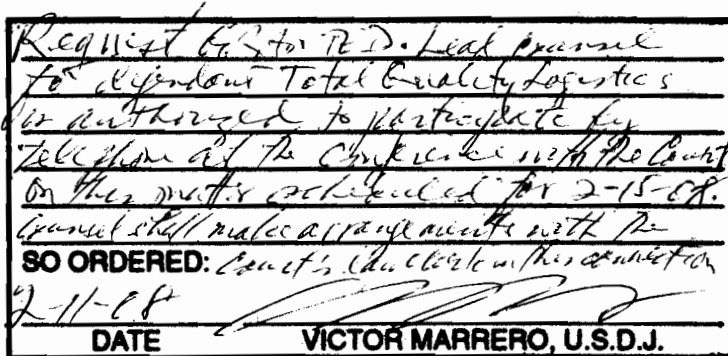 Request GRANTED. Lead counsel
to defendant Total Quality Logistics
is authorized to participate by
telephone at the conference with the Court
on this matter scheduled for 2-15-08.
Counsel shall make arrangements with the
SO ORDERED: Court's Law Clerk in this connection
2-11-08
DATE VICTOR MARRERO, U.S.D.J.